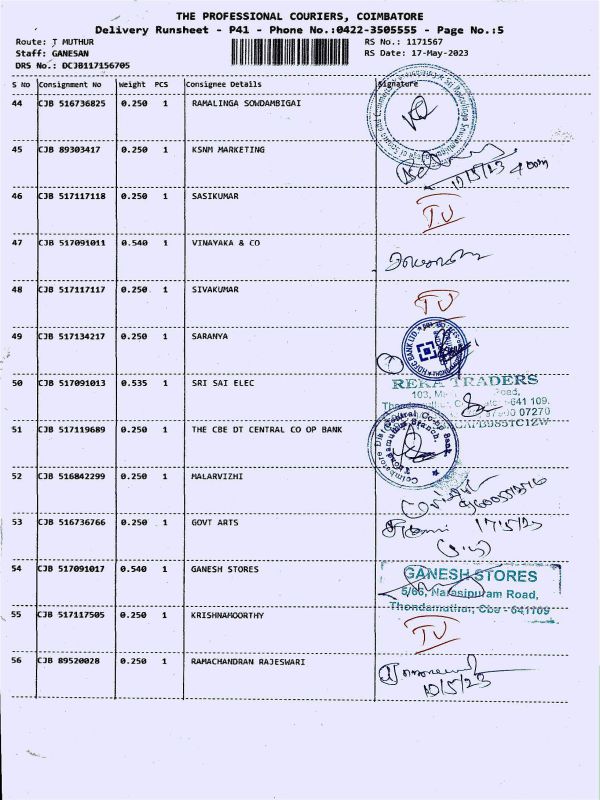 THE PROFESSIONAL COURIERS, COIMBATORE
Delivery Runsheet - P41 - Phone No.:0422-3505555 - Page No.:5
Route: T MUTHUR
RS No.: 1171567
Staff: GANESAN
RS Date: 17-May-2023
DRS No.: DCJB117156705
S No Consignment No Weight PCS Consignee Details Signature
44 CJB 516736825 0.250 1 RAMALINGA SOWDAMBIGAI
45 CJB 89303417 0.250 1 KSNM MARKETING
17/5/23 4 00m
46 CJB 517117118 0.250 1 SASIKUMAR
47 CJB 517091011 0.540 1 VINAYAKA & CO
48 CJB 517117117 0.250 1 SIVAKUMAR
49 CJB 517134217 0.250 1 SARANYA
50 CJB 517091013 0.535 1 SRI SAI ELEC REKA TRADERS
51 CJB 517119689 0.250 1 THE CBE DT CENTRAL CO OP BANK
52 CJB 516842299 0.250 1 MALARVIZHI
53 CJB 516736766 0.250 1 GOVT ARTS 17/5/23
54 CJB 517091017 0.540 1 GANESH STORES GANESH STORES
5/66, Narasipuram Road,
Thondamuthur, Cbe - 641109
55 CJB 517117505 0.250 1 KRISHNAMOORTHY
56 CJB 89520028 0.250 1 RAMACHANDRAN RAJESWARI